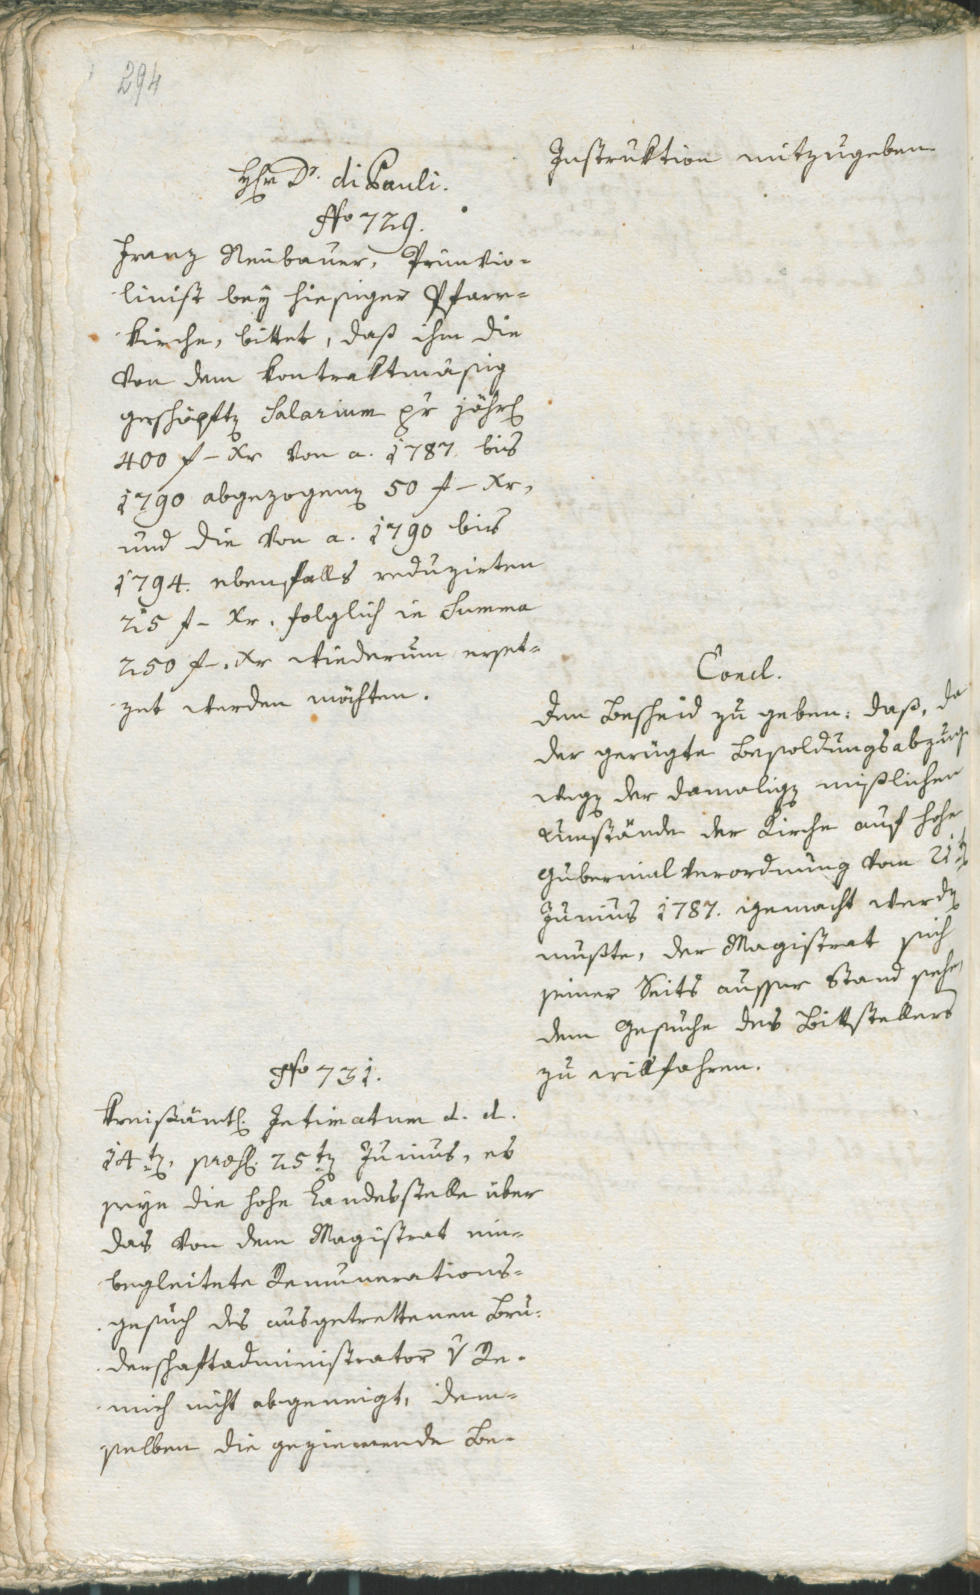 294
Instruktion mitzugeben.
Hr Dr. di Pauli.
No 729.
Franz Neubauer, Primvio-
linist bey hiesiger Pfarr-
kirche, bittet, daß ihm die
von dem kontraktmäsig
geschöpften Salarium pr jährl
400 f – Xr von a. 1787 bis
1790 abgezogenen 50 f – Xr,
und die von a. 1790 bis
1794. ebenfalls reduzirten
25 f – Xr. folglich in Summa
250 f –. Xr wiederum erset-
zet werden möchten.
Concl.
Den Bescheid zu geben: daß, da
der gerügte Besoldungsabzug
wegen der damaligen mißlichen
Umstände der Kirche auf hohe
Gubernialverordnung vom 21ten
Junius 1787. gemacht werden
mußte, der Magistrat sich
seiner Seits ausser Stand sehe,
dem Gesuche des Bittstellers
zu willfahren.
No 731.
Kreisämtl. Intimatum d. d.
14ten, praes. 25ten Junius, es
seye die hohe Landesstelle über
das von dem Magistrat ein-
begleitete Remunerations-
gesuch des ausgetrettenen Bru-
derschaftadministrator v Re-
mich nicht abgeneigt, dem-
selben die geziemende Be-